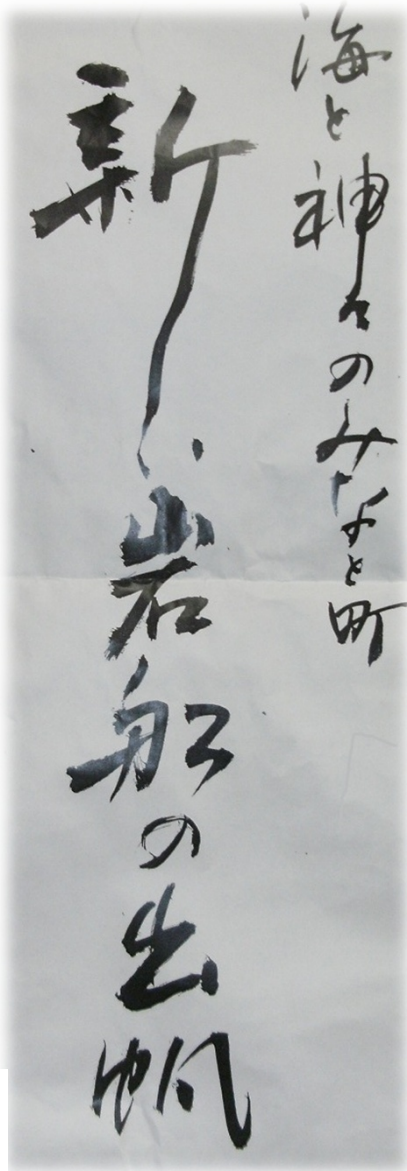 海と神々のみなと町
新しい岩船の出帆